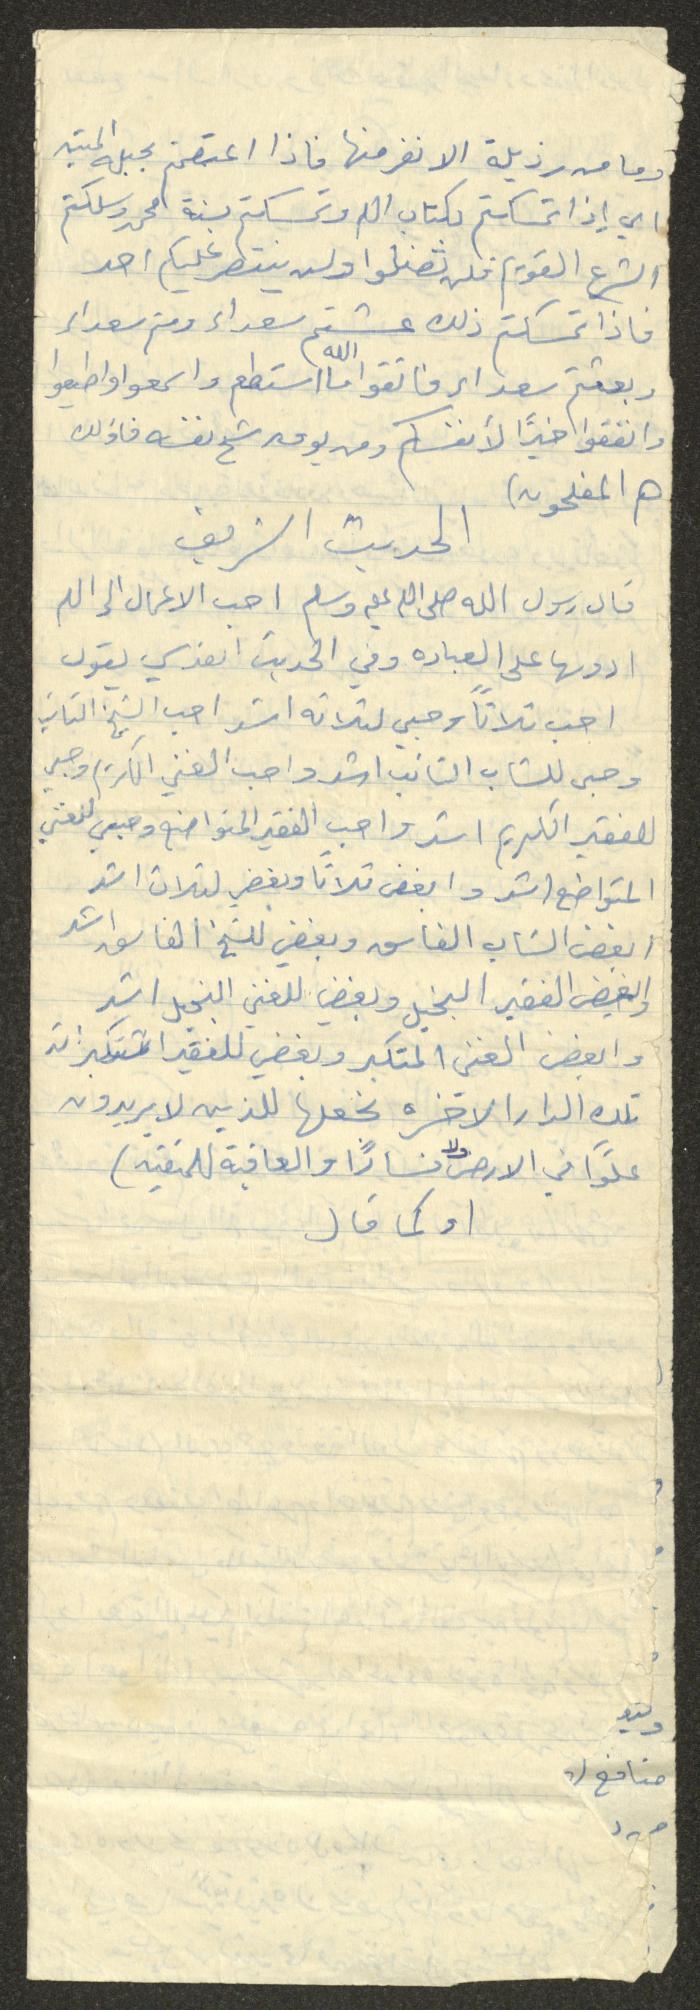 وما من رذيلة الا نفر منها فاذا اعتصمتم بحبله المتين
اي إذا تمسكتم بكتاب الله وتمسكتم بسنة محمد وسلكتم
الشرع القويم فلن تضلوا ولن ينتصر عليكم احد
فاذا تمسكتم ذلك عشتم سعداء ومتم سعداء
وبعثتم سعداء فاتقوا الله ما استطعتم واسمعوا واطيعوا
وانفقوا خيرًا لأنفسكم ومن يوق شح نفسه فاولئك
هم المفلحون)
الحديث الشريف
قال رسول الله صلى الله عليه وسلم احب الاعمال الى الله
ادومها على العباده وفي الحديث القدسي يقول
احب ثلاثاً وحبي لثلاثه اشد احب الشيخ التائب
وحبي للشاب التائب اشد واحب الغني الكريم وحبي
للفقير الكريم اشد واحب الفقير المتواضع وحبي للغني
المتواضع اشد وابغض ثلاثاً وبغضي لثلاث اشد
ابغض الشاب الفاسق وبغضي للشيخ الفاسق اشد
وابغض الفقير البخيل وبغضي للغني البخيل اشد
وابغض الغني المتكبر وبغضي للفقير المتكبر اشد
تلك الدار الاخره نجعلها للذين لا يريدون
علوًا في الارض ولا فسادًا والعاقبة للمتقين)
او كما قال
منافع